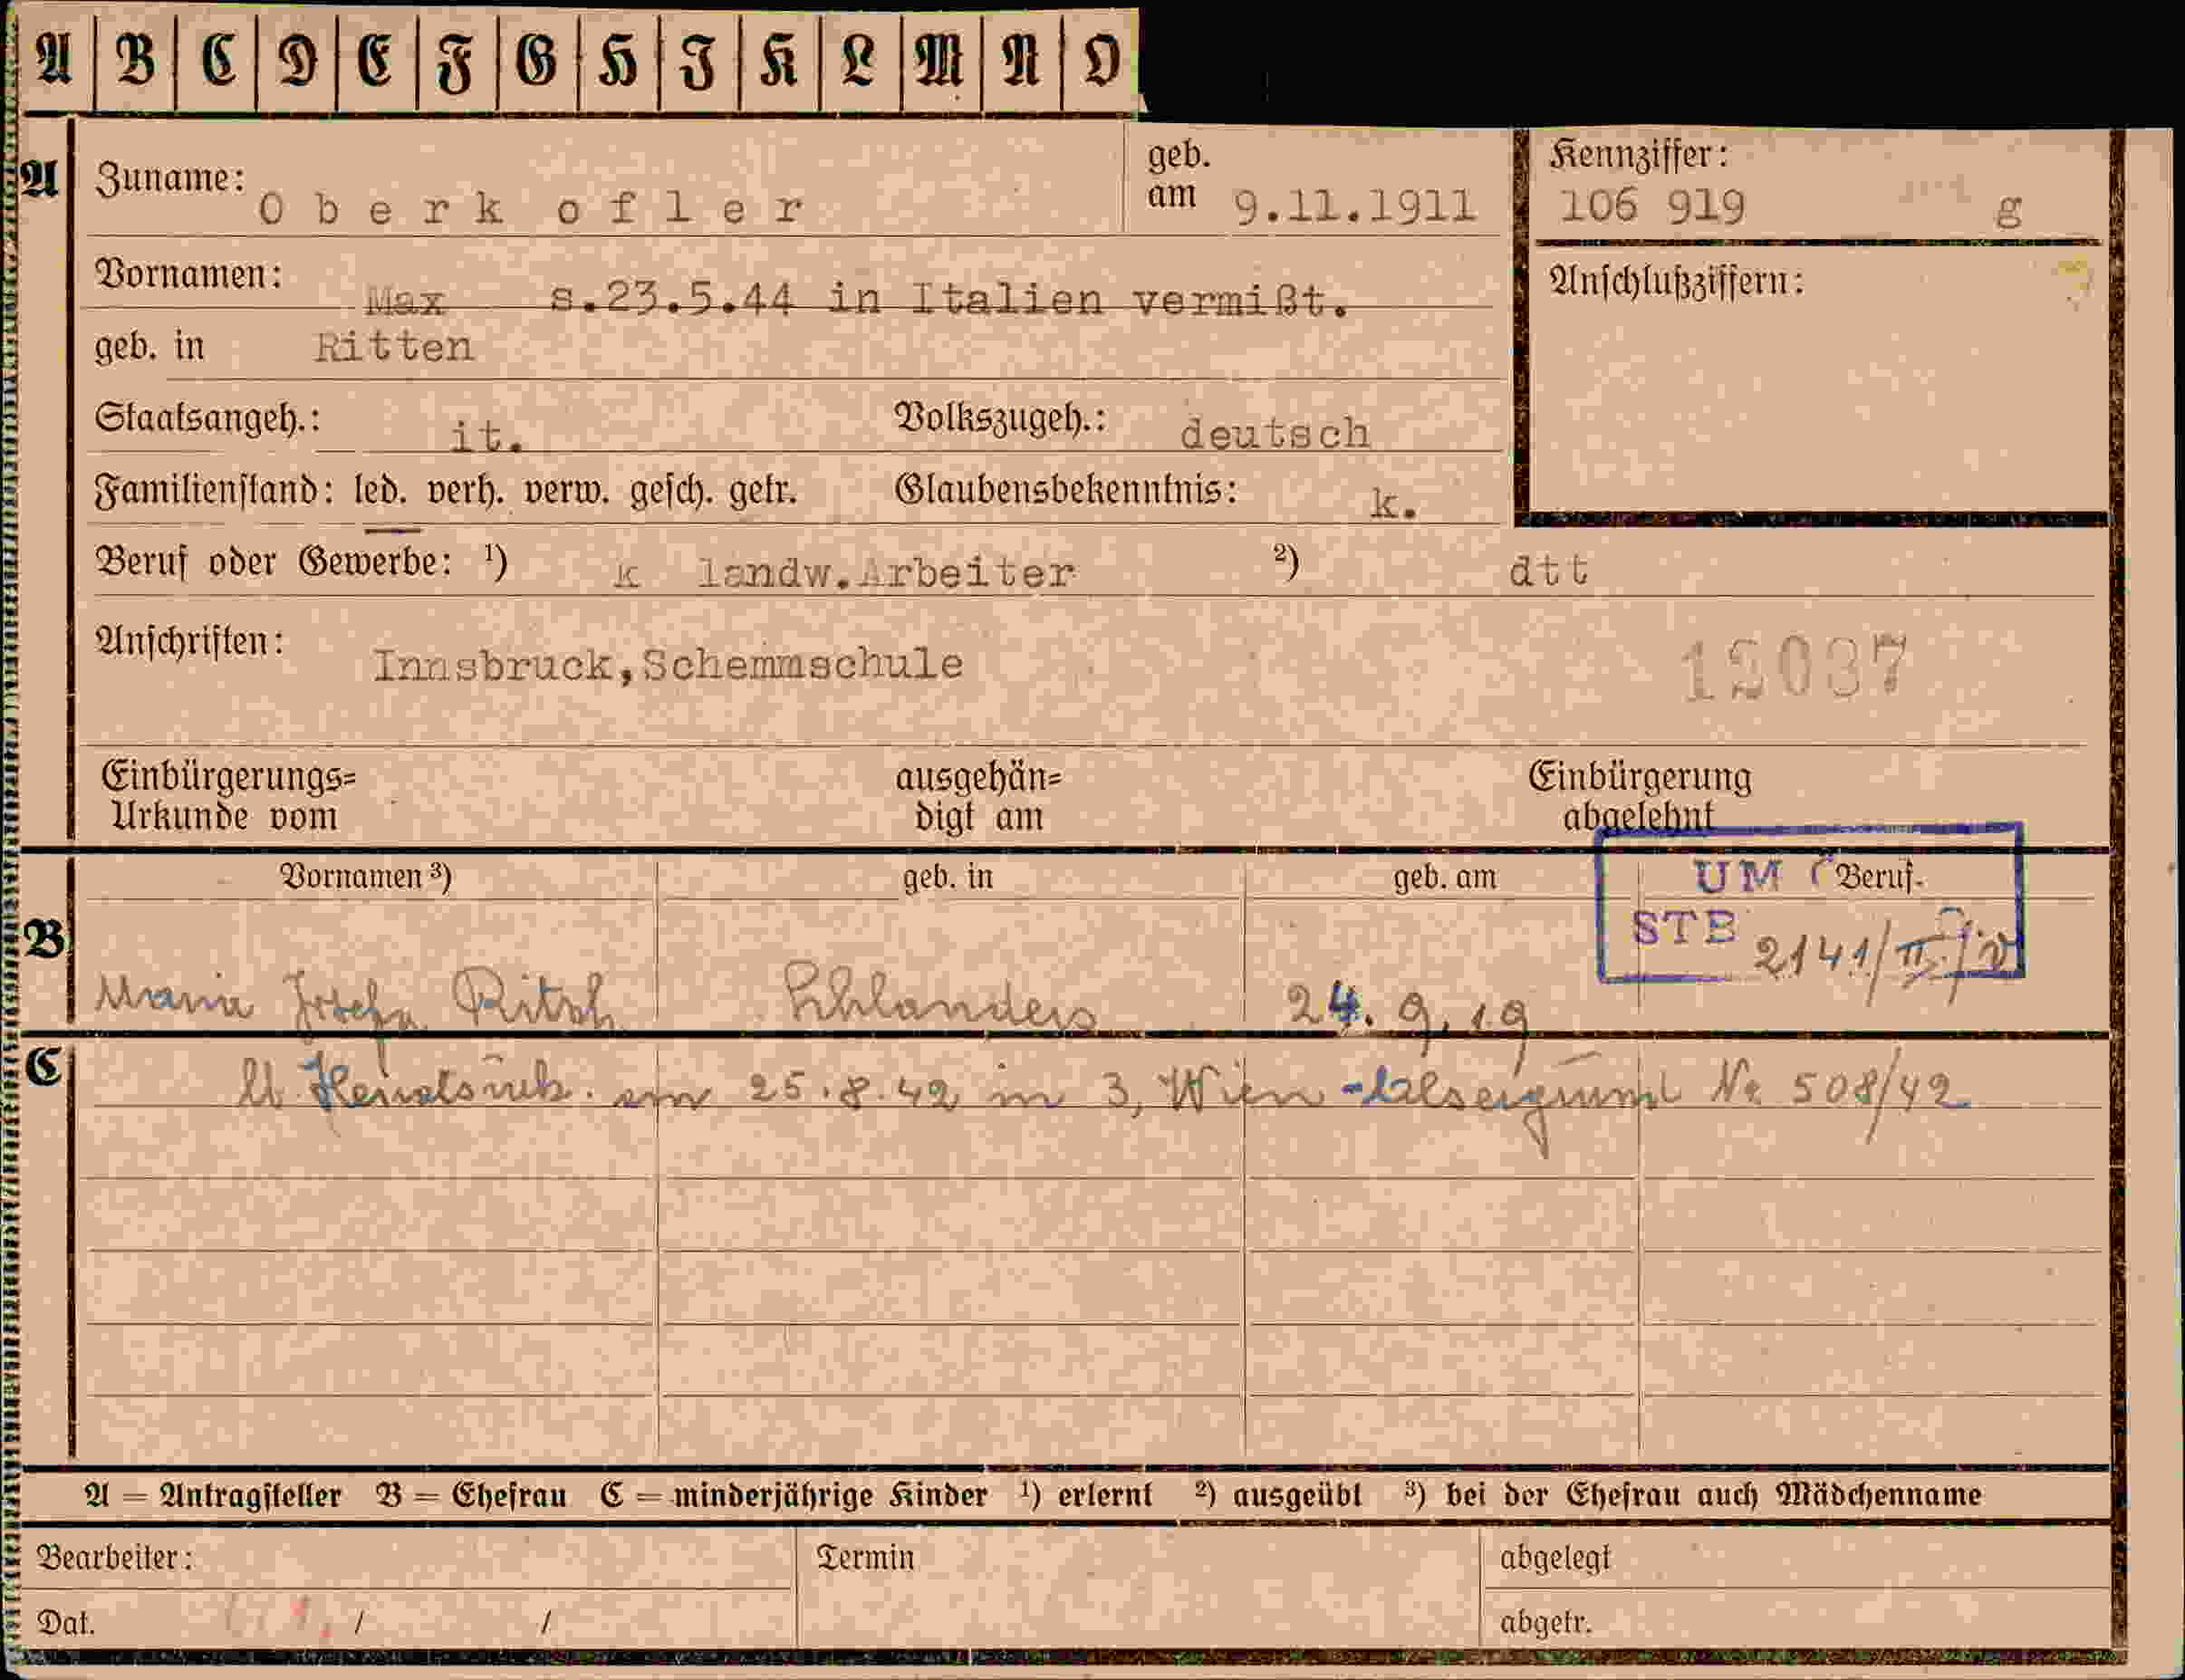 A B C D E F G H I K L M N O
A Zuname: Oberkofler geb. am 9.11.1911 Kennziffer: 106 919 g
Vornamen: Max s.23.5.44 in Italien vermißt. Anschlußziffern:
geb. in Ritten
Staatsangeh.: it. Volkszugeh.: deutsch
Familienstand: led. verh. verw. gesch. getr. Glaubensbekenntnis: k.
Beruf oder Gewerbe: 1) k landw.Arbeiter 2) dtt
Anschriften: Innsbruck,Schemmschule 15037
Einbürgerungs= ausgehän= Einbürgerung
Urkunde vom digt am abgelehnt
Vornamen 3) geb. in geb. am Beruf
UM
STB 2141/II/
B Maria Josefa Ritsch Schlanders 24.9.19
C lt. Heiratsurk. am 25.8.42 in 3, Wien - Nr. 508/42
A = Antragsteller B = Ehefrau C = minderjährige Kinder 1) erlernt 2) ausgeübt 3) bei der Ehefrau auch Mädchenname
Bearbeiter: Termin abgelegt
Dat. / / abgetr.